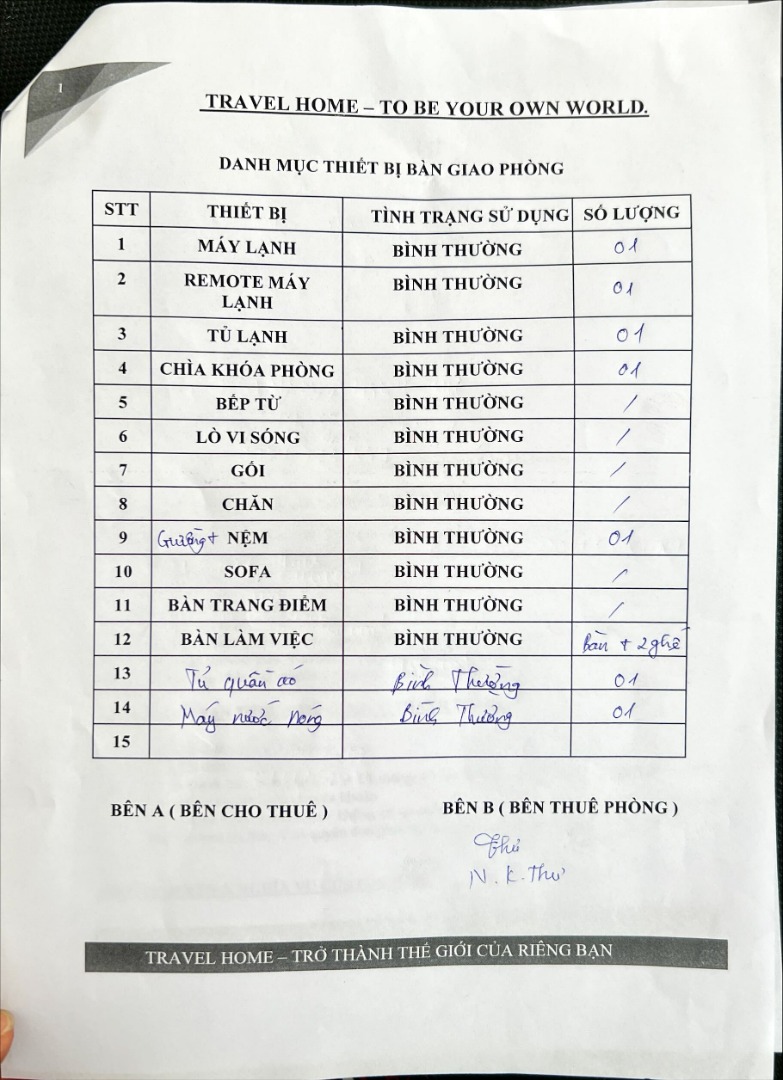 1
TRAVEL HOME – TO BE YOUR OWN WORLD.
DANH MỤC THIẾT BỊ BÀN GIAO PHÒNG
STT THIẾT BỊ TÌNH TRẠNG SỬ DỤNG SỐ LƯỢNG
1 MÁY LẠNH BÌNH THƯỜNG 01
2 REMOTE MÁY BÌNH THƯỜNG 01
LẠNH
3 TỦ LẠNH BÌNH THƯỜNG 01
4 CHÌA KHÓA PHÒNG BÌNH THƯỜNG 01
5 BẾP TỪ BÌNH THƯỜNG /
6 LÒ VI SÓNG BÌNH THƯỜNG /
7 GỐI BÌNH THƯỜNG /
8 CHĂN BÌNH THƯỜNG /
9 Giường + NỆM BÌNH THƯỜNG 01
10 SOFA BÌNH THƯỜNG /
11 BÀN TRANG ĐIỂM BÌNH THƯỜNG /
12 BÀN LÀM VIỆC BÌNH THƯỜNG Bàn + 2 ghế
13 Tủ quần áo Bình Thường 01
14 Máy nước nóng Bình Thường 01
15
BÊN A ( BÊN CHO THUÊ ) BÊN B ( BÊN THUÊ PHÒNG )
Thư
N. K. Thư
TRAVEL HOME – TRỞ THÀNH THẾ GIỚI CỦA RIÊNG BẠN